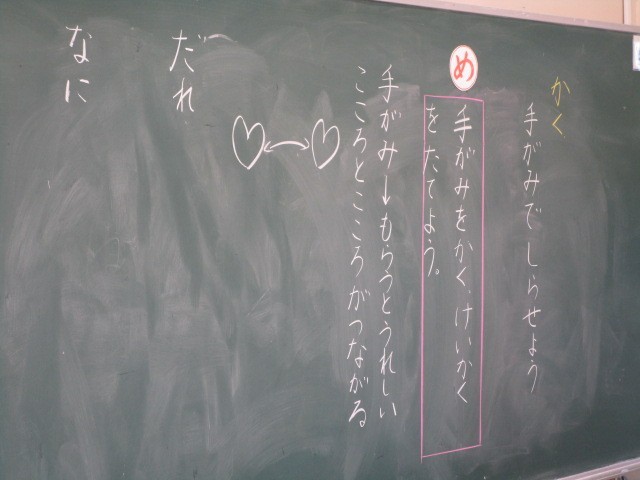 かく
手がみでしらせよう
め
手がみをかく、けいかく
をたてよう。
手がみ→もらうとうれしい
こころとこころがつながる
だれ
なに